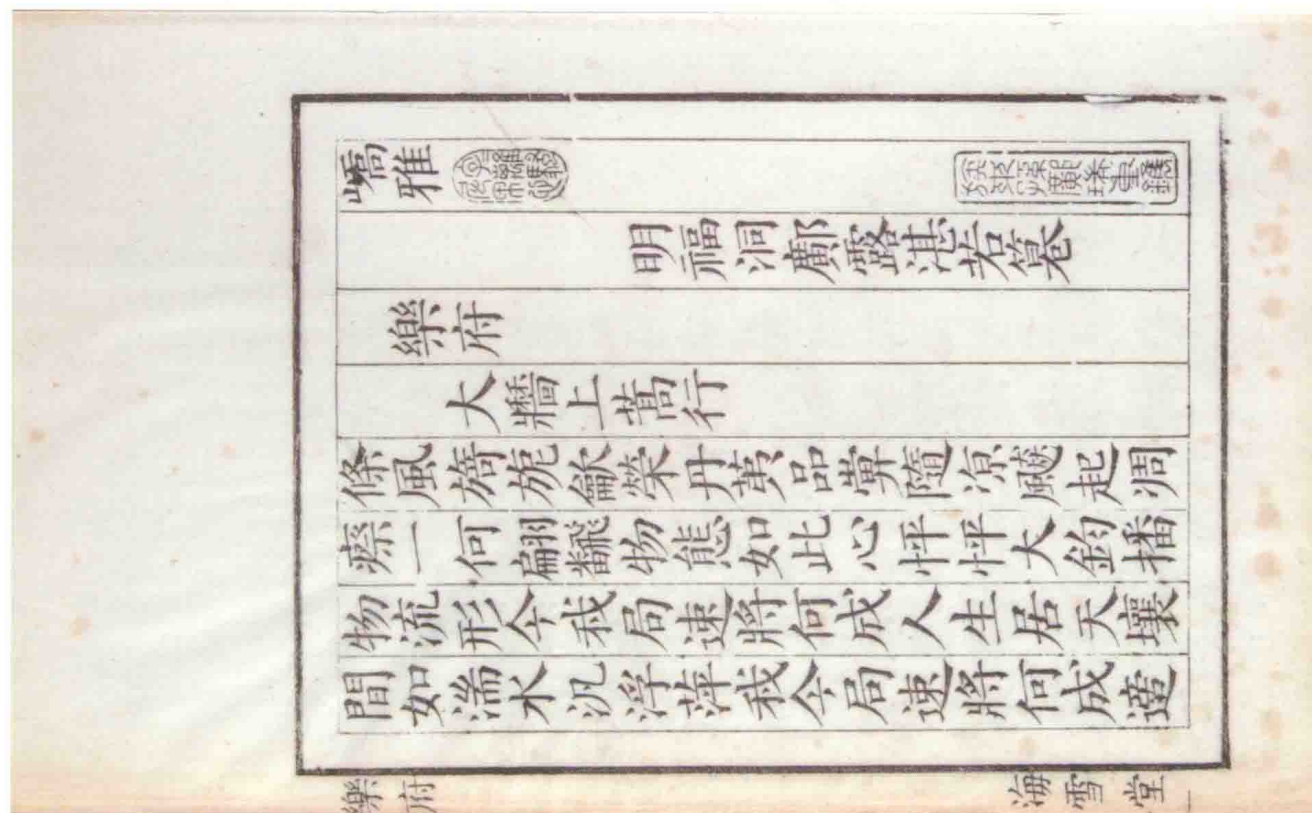 嶠雅
明福洞鄺露湛若篹
樂府
大牆上蒿行
條風旖旎歙榮丹荑品彙隨涼起凋
瘵一何翩飜物態如此心怦怦大鈞播
物流形今我局速將何成人生居天壤
間如湍水汎浮萍我今局速將何成
樂府 海雪堂